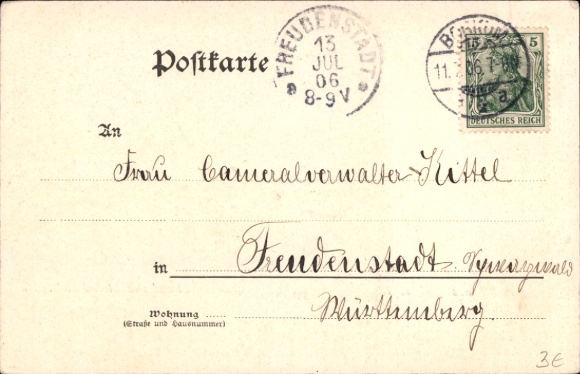 Postkarte
FREUDENSTADT
13
JUL
06
8-9V
11.
06
a
5
DEUTSCHES REICH
An
Frau Cameralverwalter Kittel
in Freudenstadt
Württemberg.
Wohnung
(Straße und Hausnummer)
3€